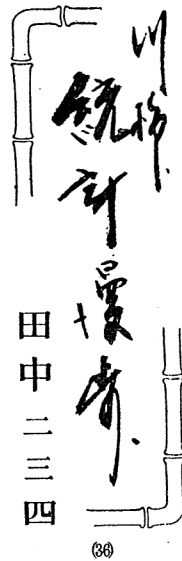 川柳
統計漫歩
田中二三四
(36)